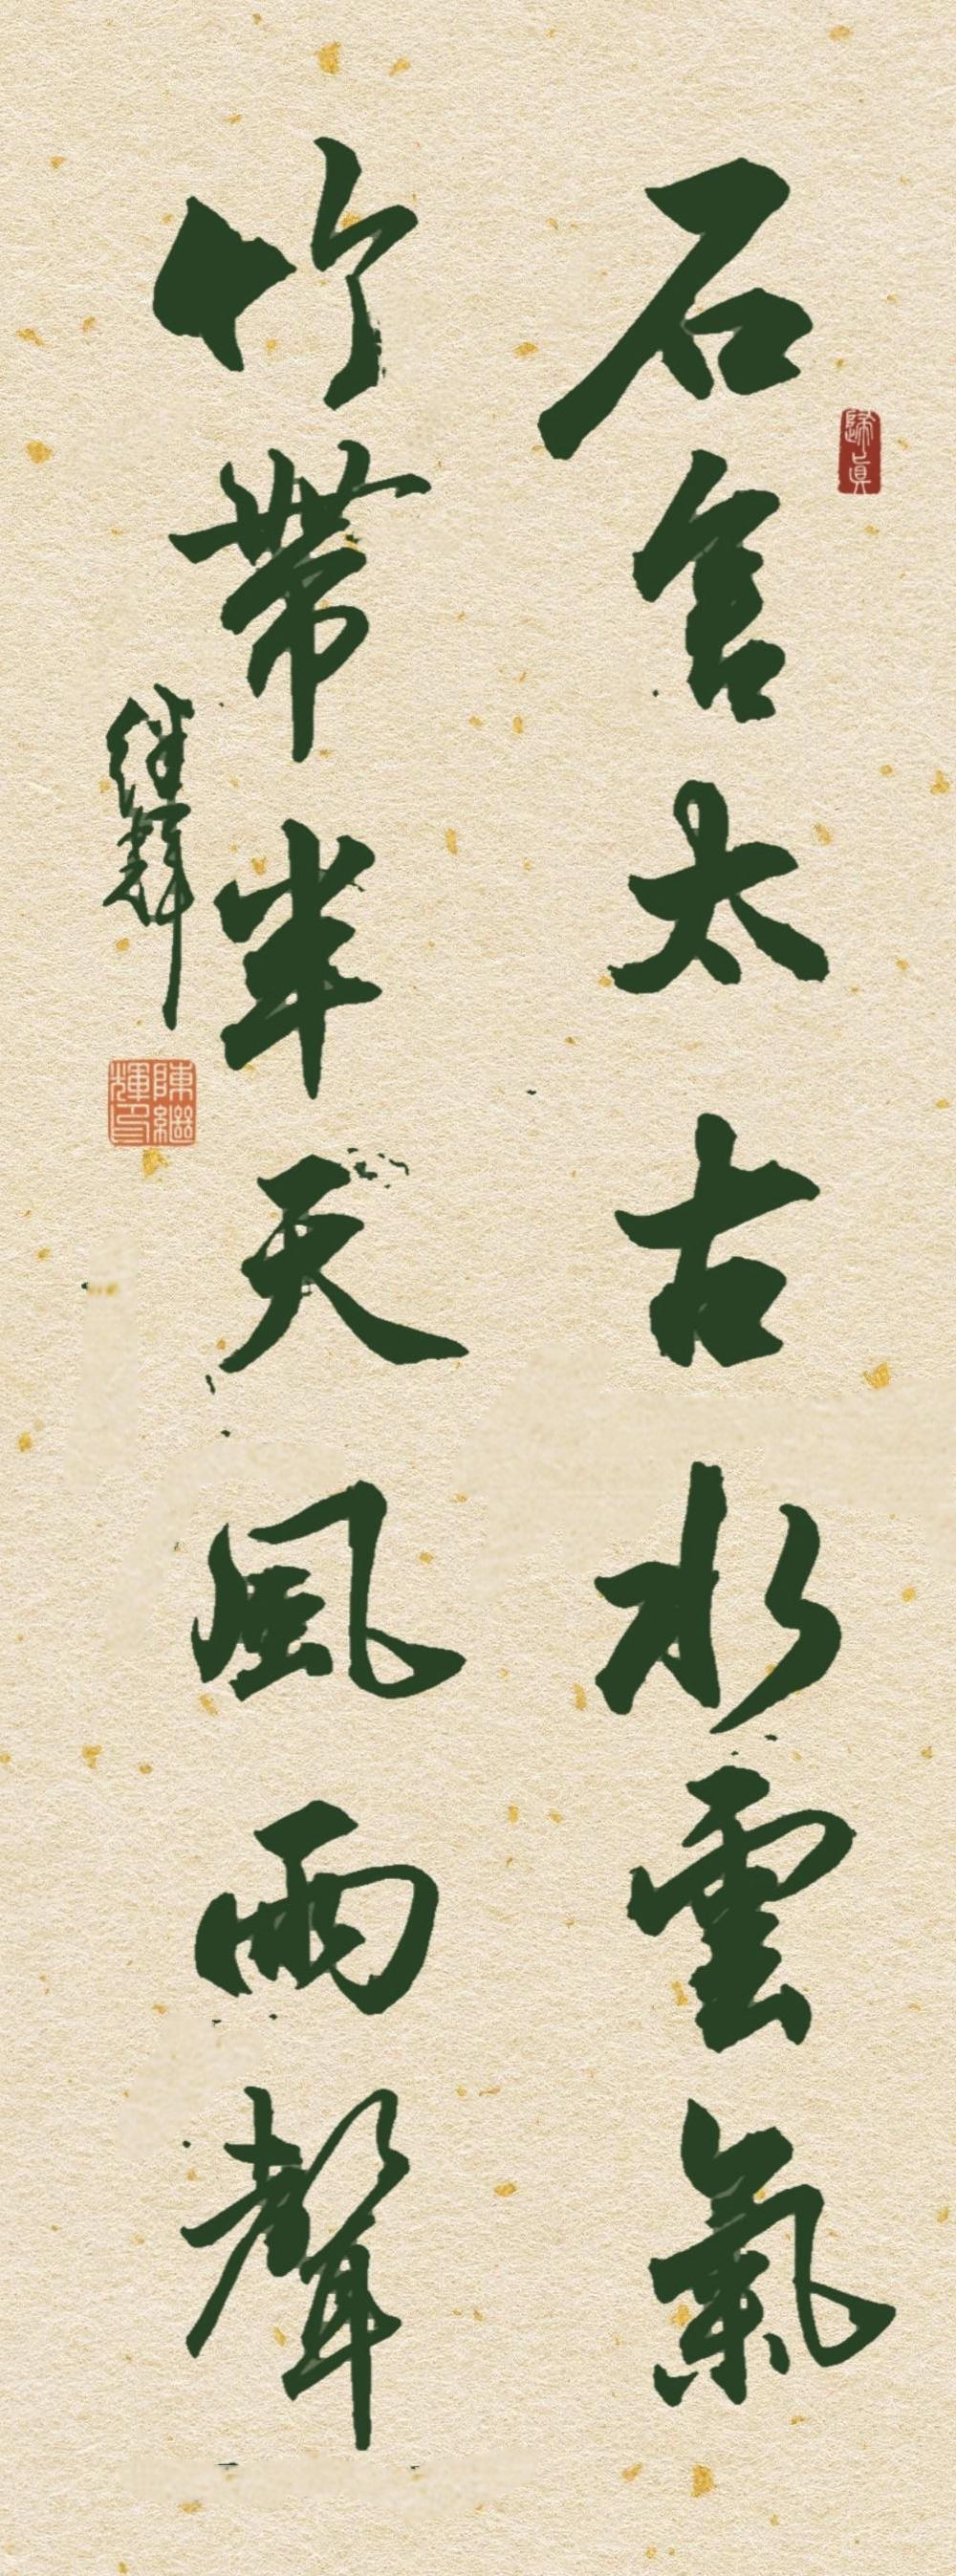 石含太古水雲氣
歸真
竹帶半天風雨聲
继輝
陳繼輝印